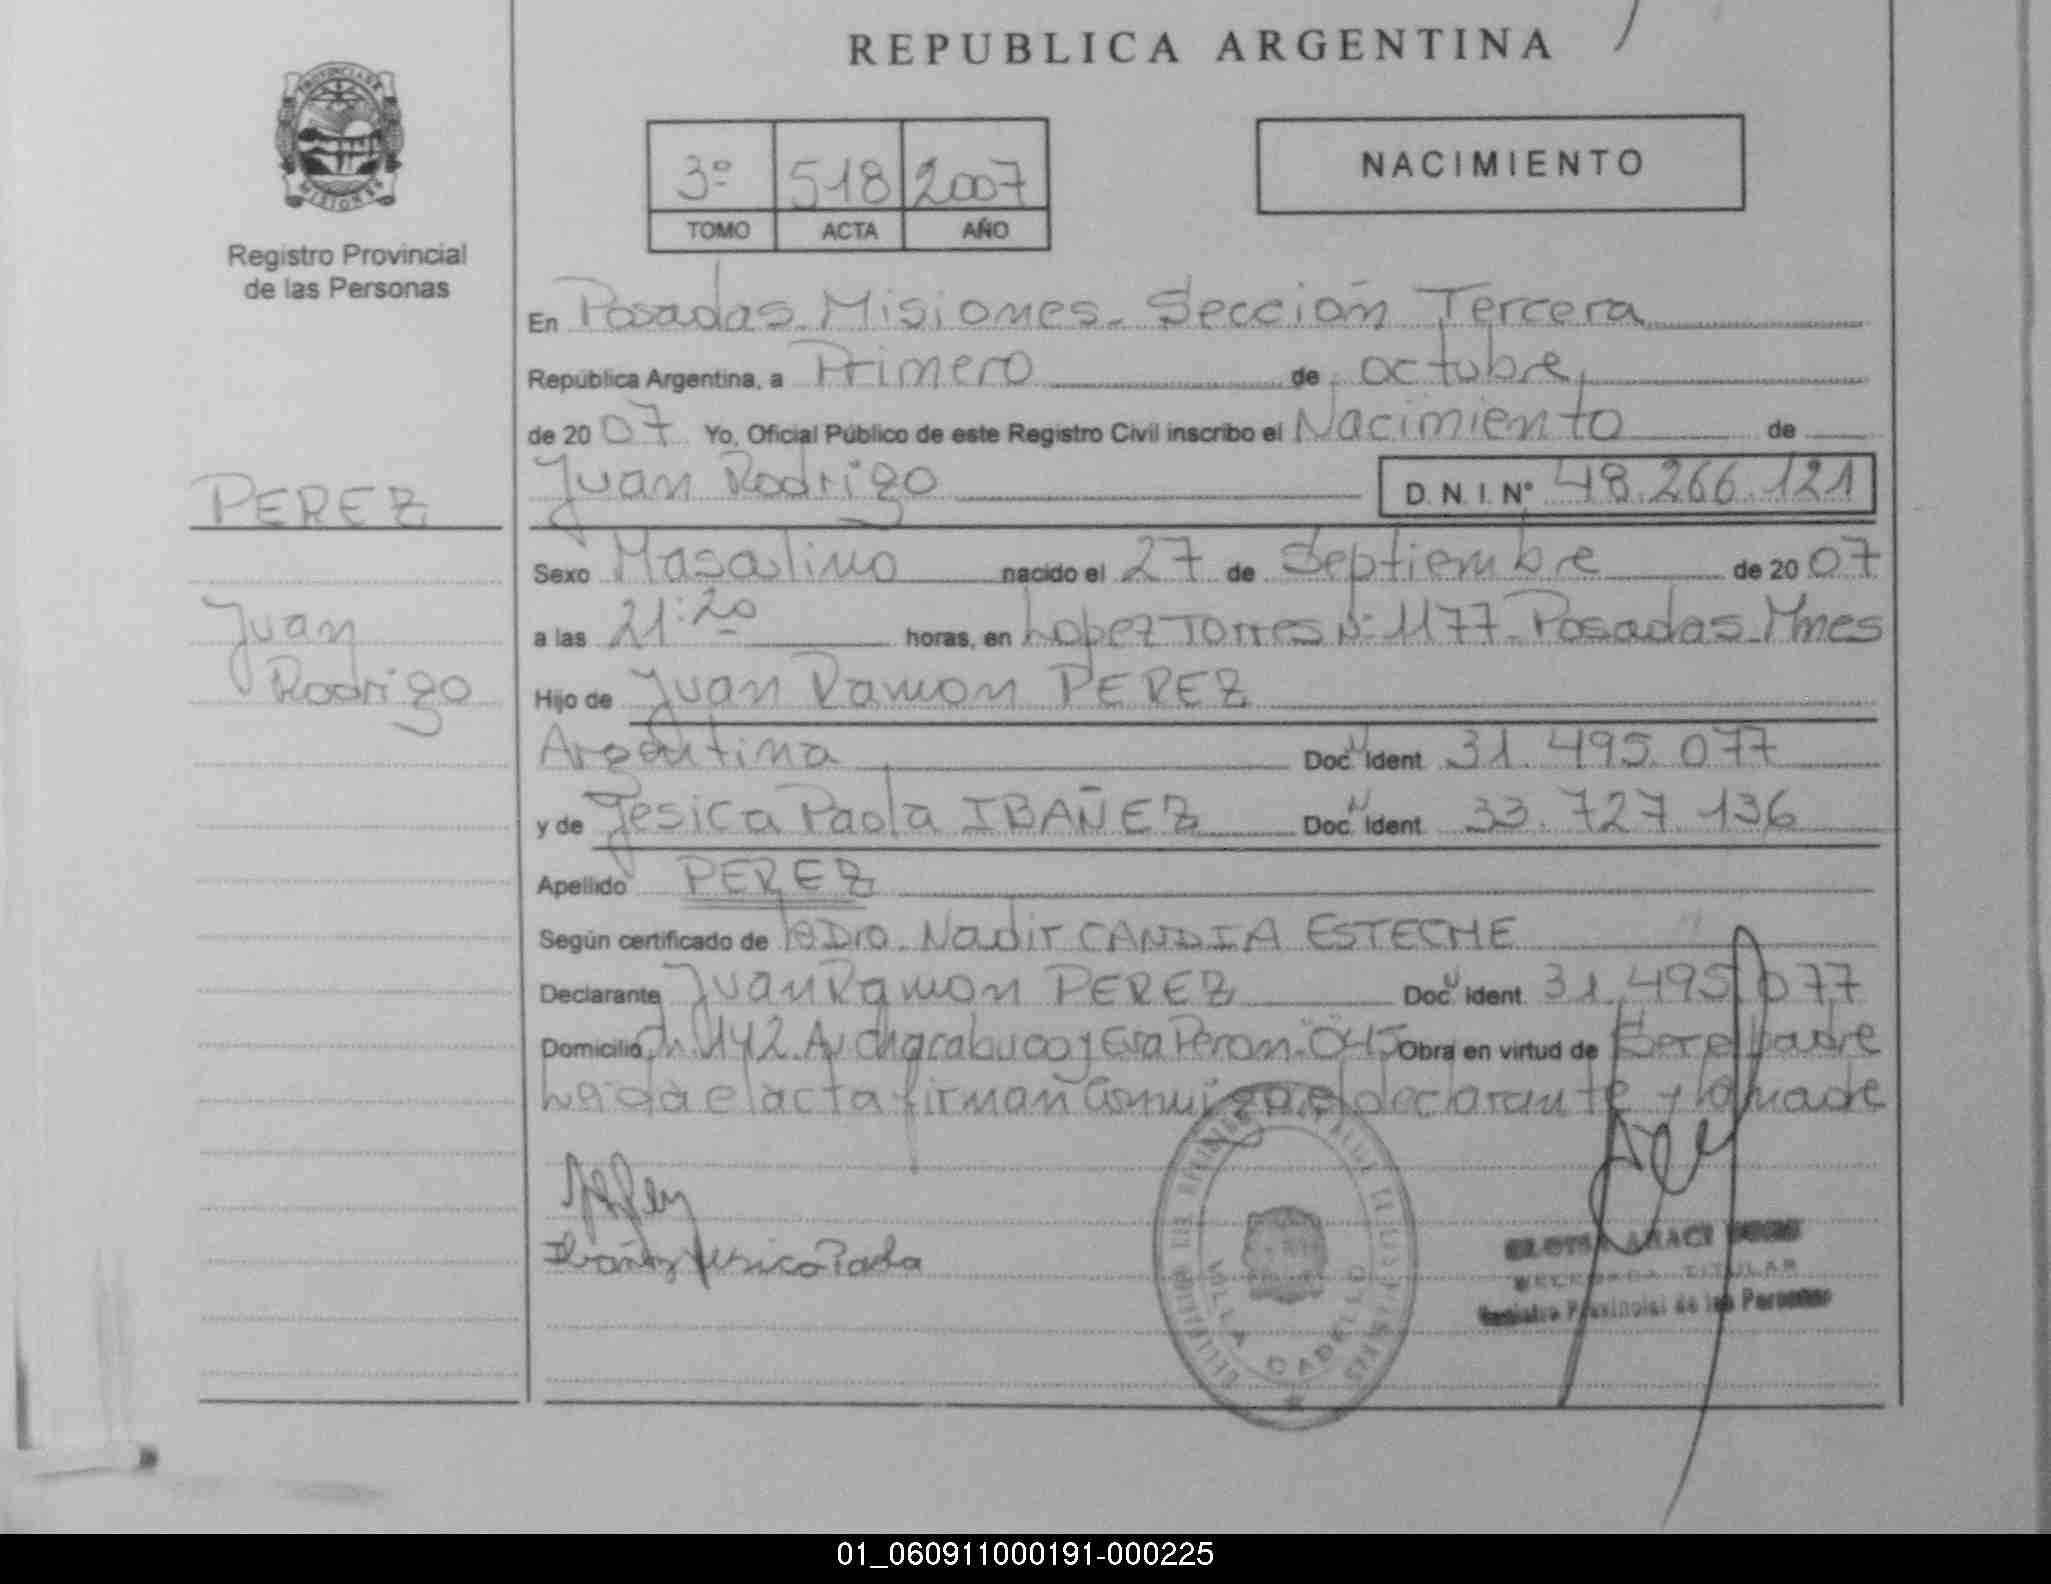 REPUBLICA ARGENTINA
PROVINCIA DE
MISIONES
Registro Provincial
de las Personas
3º 518 2007
TOMO ACTA AÑO
NACIMIENTO
En Posadas Misiones. Sección Tercera
República Argentina, a Primero de octubre,
de 2007 Yo, Oficial Público de este Registro Civil inscribo el Nacimiento de
PEREZ
Juan Rodrigo D.N.I. Nº 48.266.121
Sexo Masculino nacido el 27 de Septiembre de 2007
Juan
a las 21:20 horas, en Lopez Torres Nº 1177. Posadas Mnes
Rodrigo
Hijo de Juan Ramon PEREZ
Argentina Doc. Ident. 31.495.077
y de Jesica Paola IBAÑEZ Doc. Ident. 33.727.136
Apellido PEREZ
Según certificado de la Dra. Nadir CANDIA ESTECHE
Declarante Juan Ramon PEREZ Doc. Ident. 31.495.077
Domicilio Ch. 142. Av Chacabuco y Eva Peron. Obra en virtud de Ser el padre
Leída el acta firman Conmigo el declarante y la madre
Ibañez Jesica Paola
VILLA CABELLO
TITULAR
Registro Provincial de las Personas
01_060911000191-000225